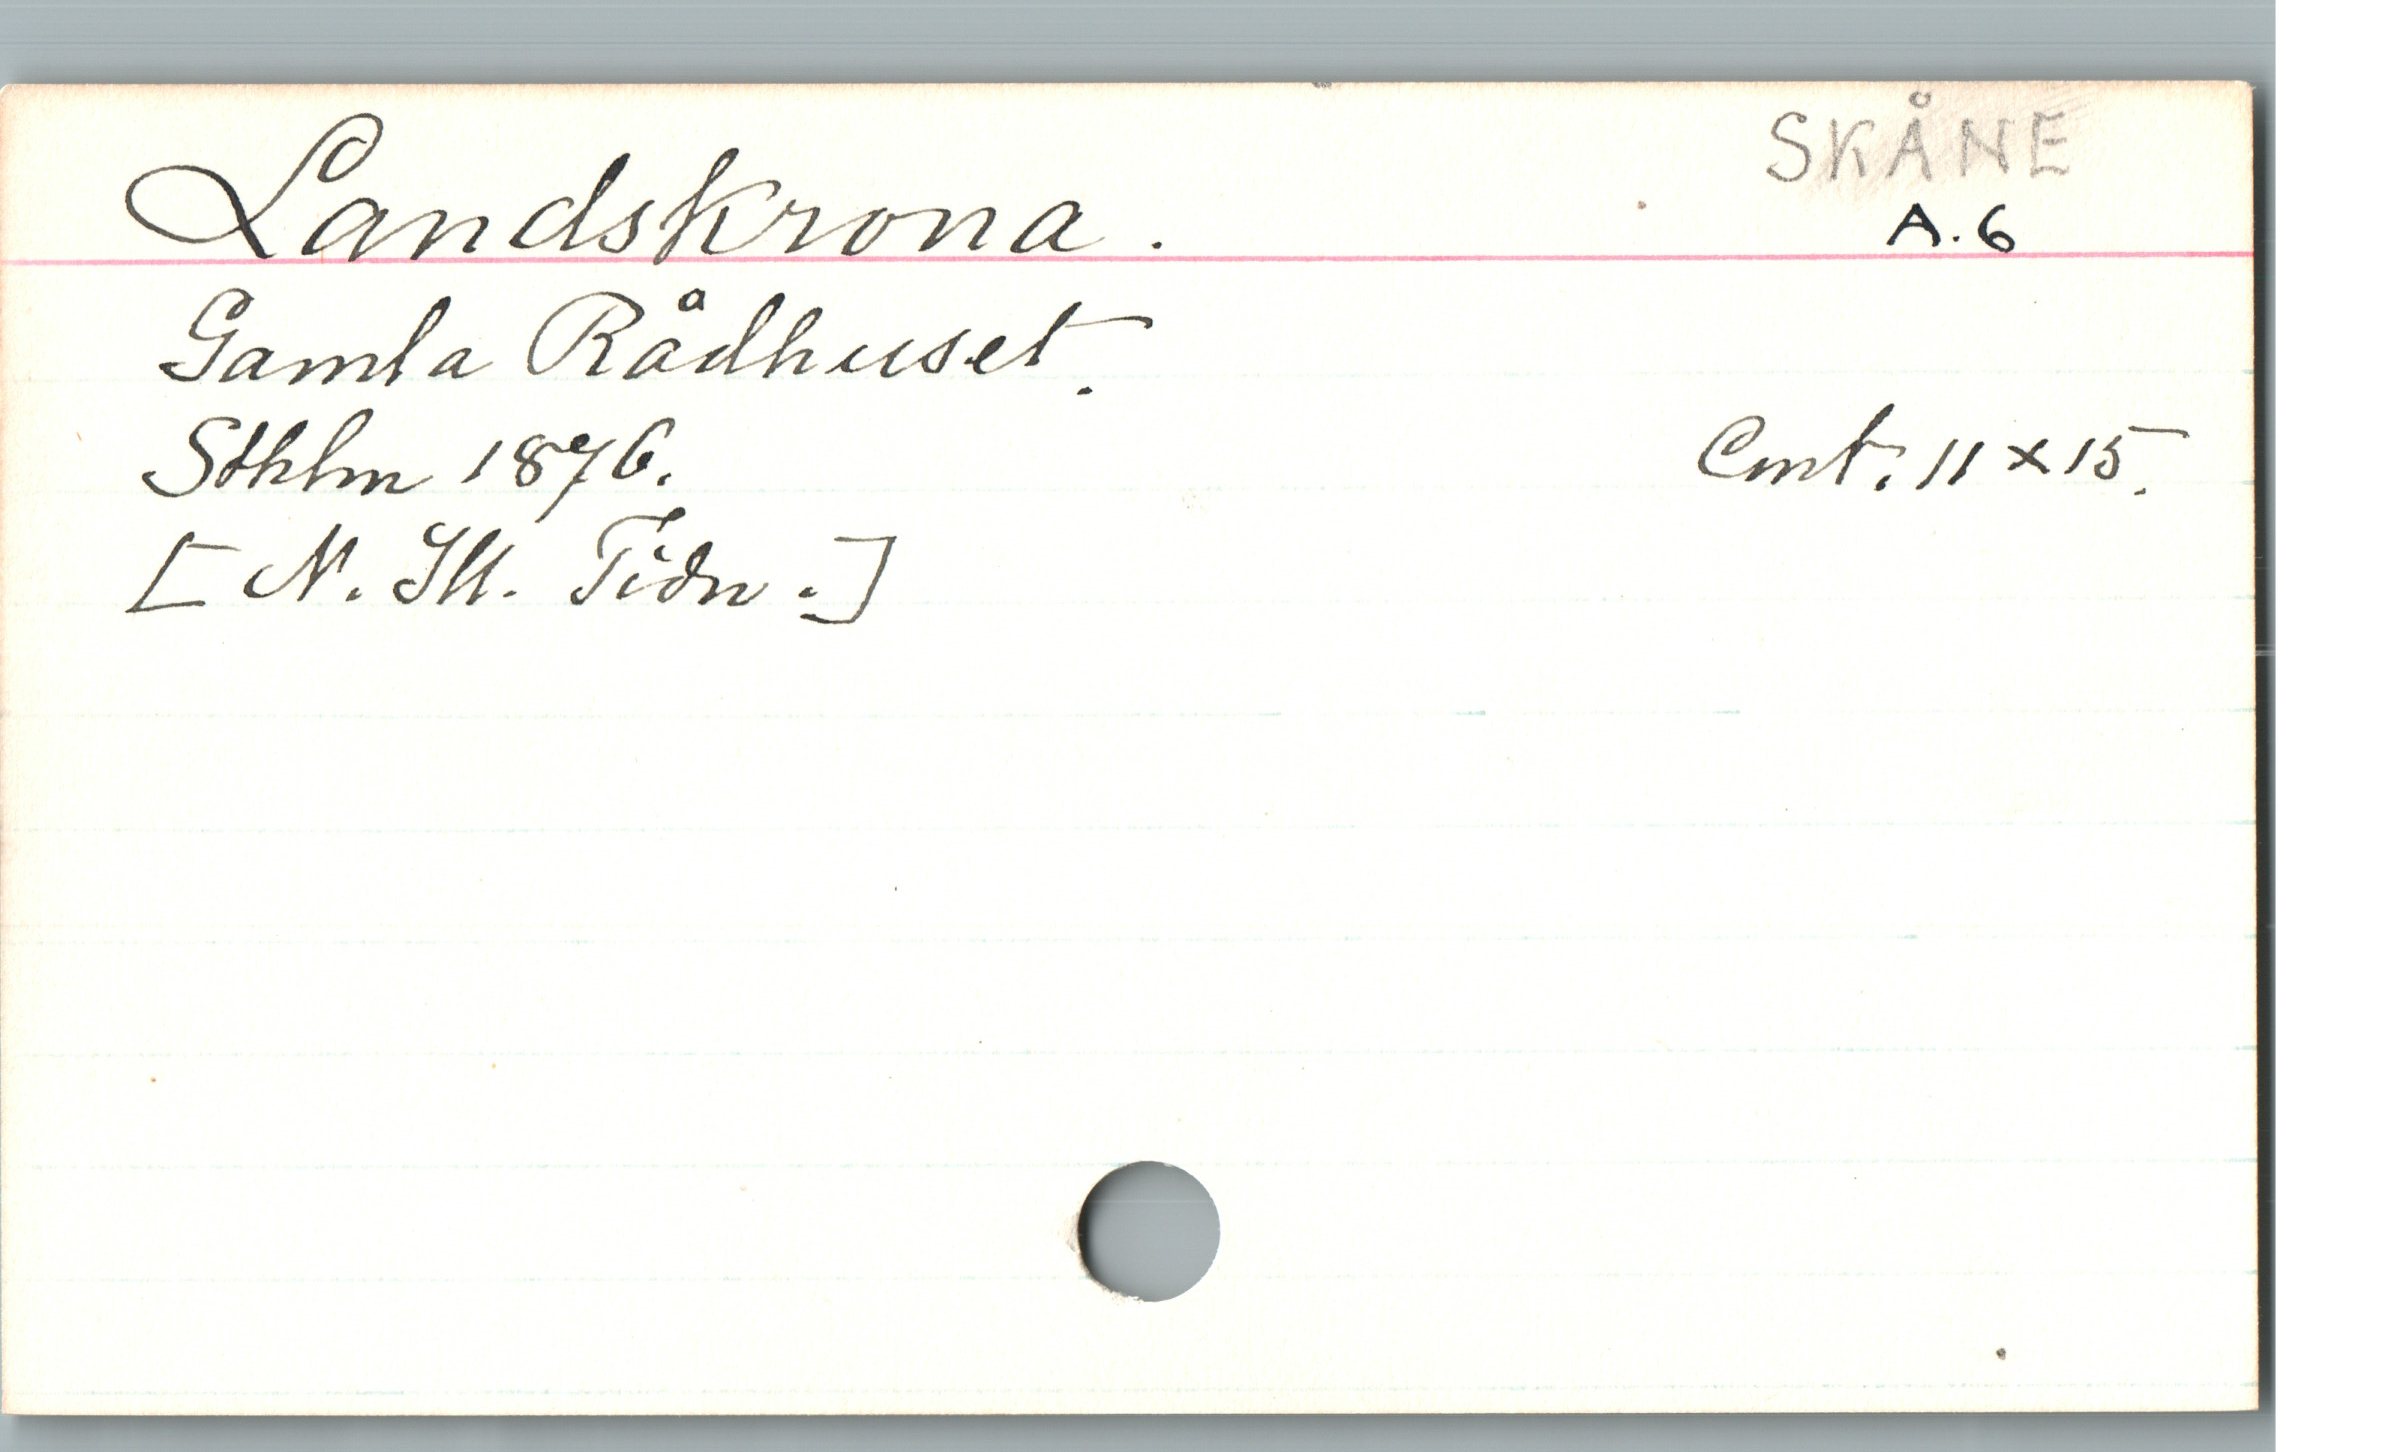 SKÅNE
Landskrona. A.6
Gamla Rådhuset.
Sthlm 1876. Cmt. 11 x 15.
[N. Ill. Tidn.]